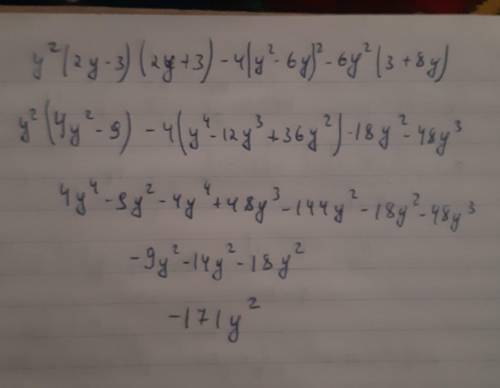 y²(2y-3)(2y+3)-4(y²-6y)²-6y²(3+8y)
y²(4y²-9)-4(y⁴-12y³+36y²)-18y²-48y³
4y⁴-9y²-4y⁴+48y³-144y²-18y²-48y³
-9y²-14y²-18y²
-171y²